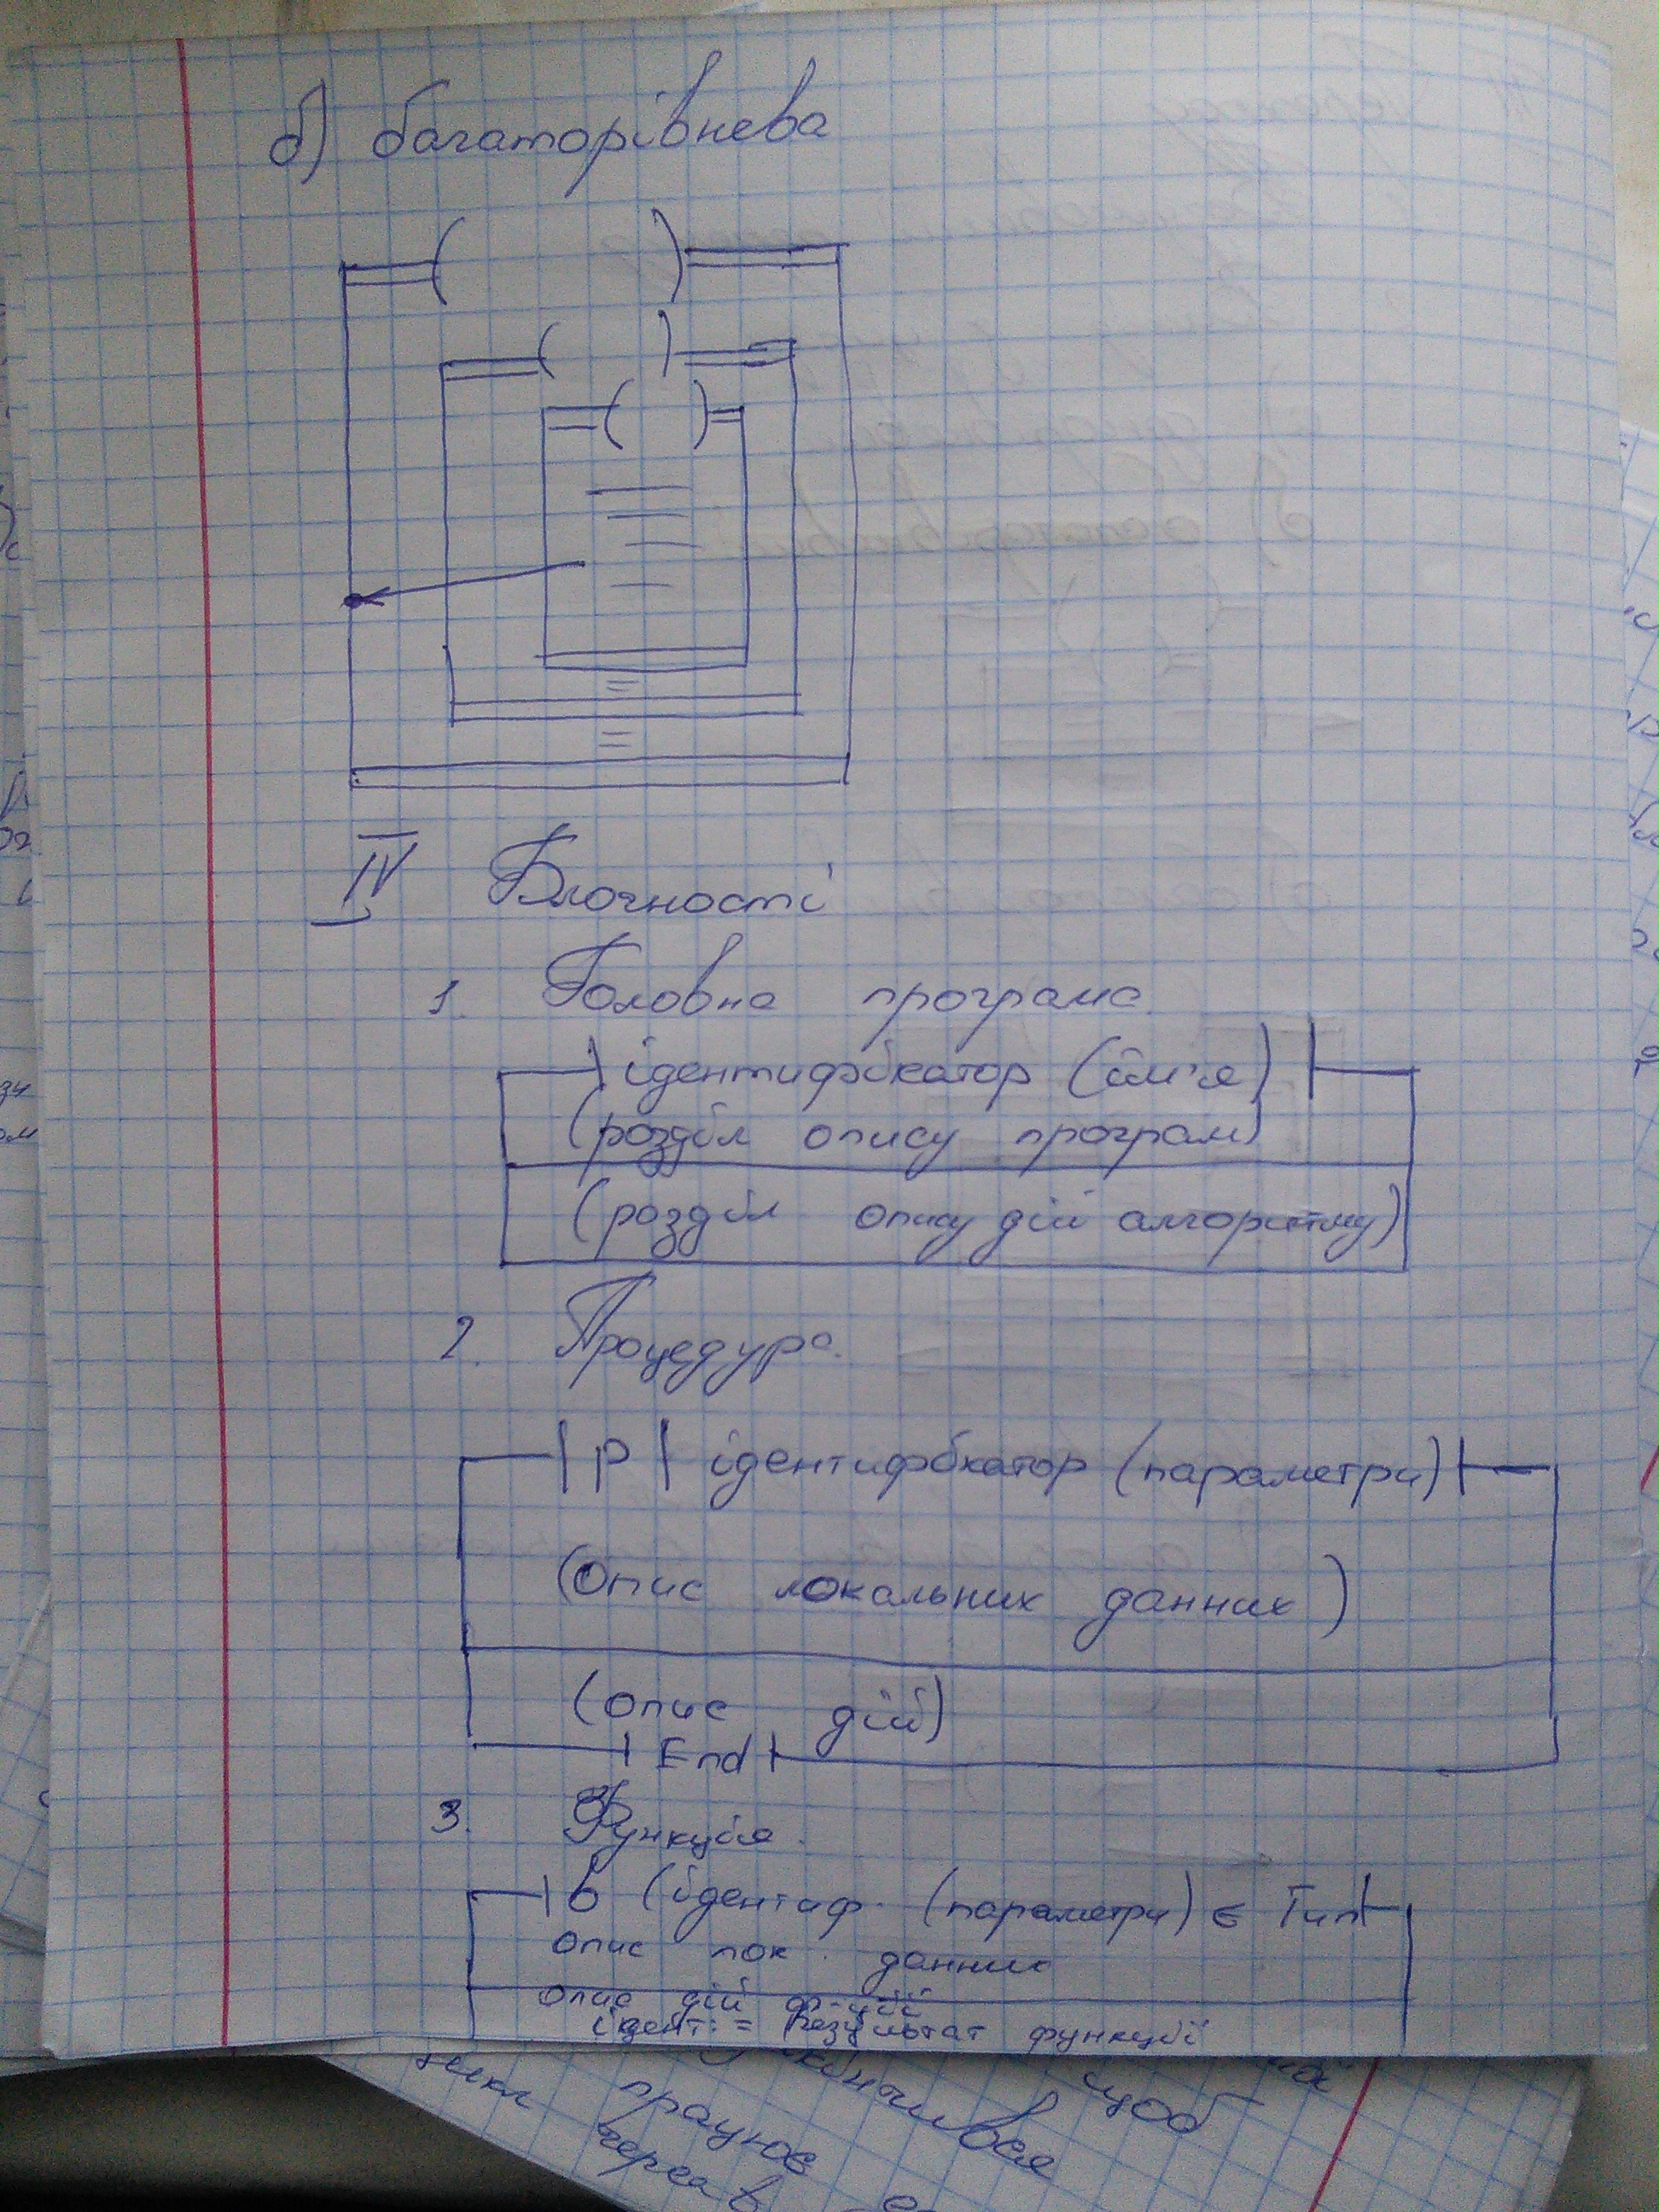 б) багаторівнева
IV Блочності
1. Головна програма.
ідентифікатор (ім'я)
(розділ опису програм)
(розділ опису дій алгоритму)
2. Процедура.
|P| ідентифікатор (параметри)
(Опис локальних данних)
(опис дій)
End
3. Функція.
(ідентиф. (параметри) ∈ Тип
опис лок. данних
опис дій ф-ції
ідент: = Результат функції
що б
працює
через